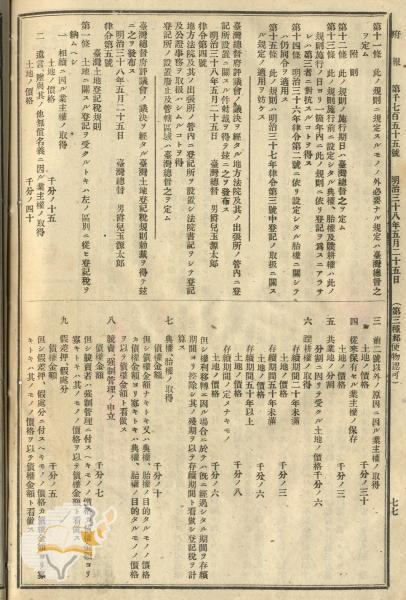 府報 第千七百五十五號 明治三十八年五月二十五日 (第三種郵便物認可) 七七
第十一條 此ノ規則ニ規定スルモノノ外必要ナル規定ハ臺灣總督之
ヲ定ム
附則
第十二條 此ノ規則ノ施行期日ハ臺灣總督之ヲ定ム
第十三條 此ノ規則施行前ニ設定シタル典權、胎權及贌耕權ハ此ノ
規則施行ノ日ヨリ一箇年內ニ此ノ規則ニ依リ登記ヲ爲スニアラサ
レハ第三者ニ對抗スルコトヲ得ス
第十四條 明治三十六年律令第二號ニ依リ設定シタル胎權ニ關シテ
ハ仍同令ヲ適用ス
第十五條 此ノ規則ハ明治三十七年律令第三號中登記ノ取扱ニ關ス
ル規定ノ適用ヲ妨ケス
臺灣總督府評議會ノ議決ヲ經タル地方法院及其ノ出張所ノ管內ニ登
記所設置ニ關スル件勅裁ヲ得テ茲ニ之ヲ發布ス
明治三十八年五月二十五日 臺灣總督 男爵兒玉源太郎
律令第四號
地方法院及其ノ出張所ノ管內ニ登記所ヲ設置シ法院書記ヲシテ登記
及公證事務ヲ取扱ハシムルコトヲ得
登記所ノ設置廢止及管轄區域ハ臺灣總督之ヲ定ム
臺灣總督府評議會ノ議決ヲ經タル臺灣土地登記稅規則勅裁ヲ得テ茲
ニ之ヲ發布ス
明治三十八年五月二十五日 臺灣總督 男爵兒玉源太郎
律令第五號
臺灣土地登記稅規則
第一條 土地ニ關スル登記ヲ受クルトキハ左ノ區別ニ從ヒ登記稅ヲ
納ムヘシ
一 相續ニ因ル業主權ノ取得
土地ノ價格 千分ノ十五
二 遺言、贈與其ノ他無償名義ニ因ル業主權ノ取得
土地ノ價格 千分ノ四十
三 前二號以外ノ原因ニ因ル業主權ノ取得
土地ノ價格 千分ノ三十
四 從來保有セル業主權ノ保存
土地ノ價格 千分ノ三
五 共業地ノ分割
分割ニ因リテ受クル土地ノ價格 千分ノ六
六 贌耕權ノ取得
存續期間二十年未滿
土地ノ價格 千分ノ三
存續期間五十年未滿
土地ノ價格 千分ノ六
存續期間五十年以上
土地ノ價格 千分ノ八
存續期間ノ定メナキモノ
土地ノ價格 千分ノ六
但シ權利移轉ニ因ル場合ニ於テハ旣ニ經過シタル期間ヲ存續
期間ヨリ控除シ其ノ殘期ヲ以テ存續期間ト看做シ登記稅ヲ計
算ス
七 典權、胎權ノ取得
債權金額 千分ノ十
但シ債權金額ナキトキ又ハ典權、胎權ノ目的タルモノノ價格
カ債權金額ヨリ寡キトキハ典權、胎權ノ目的タルモノノ價格
ヲ以テ債權金額ト看做ス
八 競賣、强制管理ノ申立
債權金額 千分ノ七
但シ競賣若ハ强制管理ニ付スヘキモノノ價格カ債權金額ヨリ
寡キトキハ其ノモノノ價格ヲ以テ債權金額ト看做ス
九 假差押、假處分
債權金額 千分ノ五
但シ假差押、假處分ニ付スヘキモノノ價格カ債權金額ヨリ寡
キトキハ其ノモノノ價格ヲ以テ債權金額ト看做ス